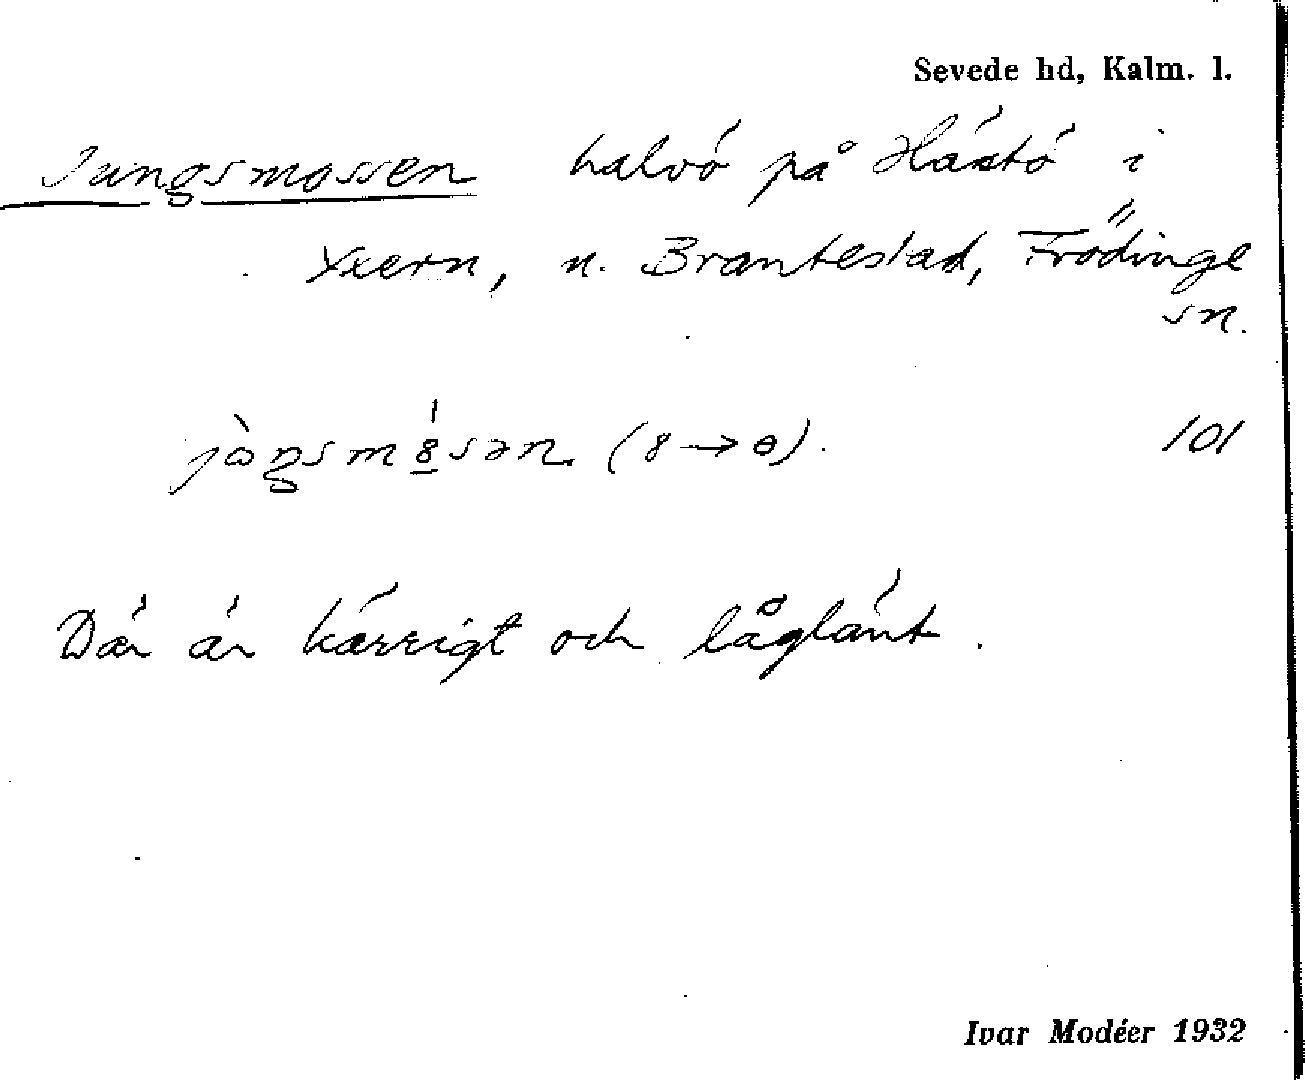 Sevede hd, Kalm. l.
Jungsmossen halvö på Hästö i
Yxern, n. Brantestad, Frödinge
sn.
101
Där är kärrigt och låglänt.
Ivar Modéer 1932